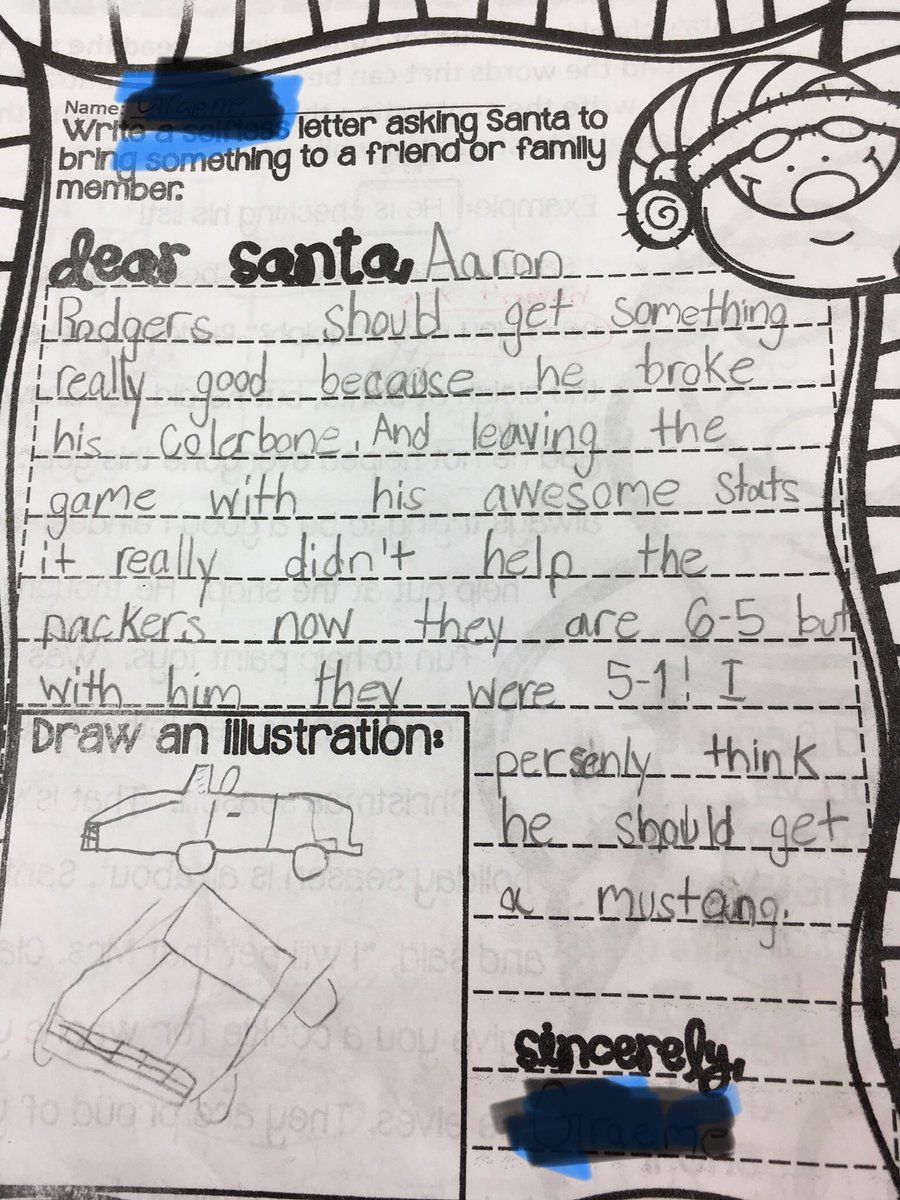 Name:
Write a selfless letter asking Santa to
bring something to a friend or family
member.
dear santa, Aaron
Rodgers should get something
really good because he broke
his Colerbone. And leaving the
game with his awesome Stats
it really didn't help the
packers now they are 6-5 but
with him they were 5-1! I
persenly think
he should get
a mustang.
Draw an illustration:
sincerely,